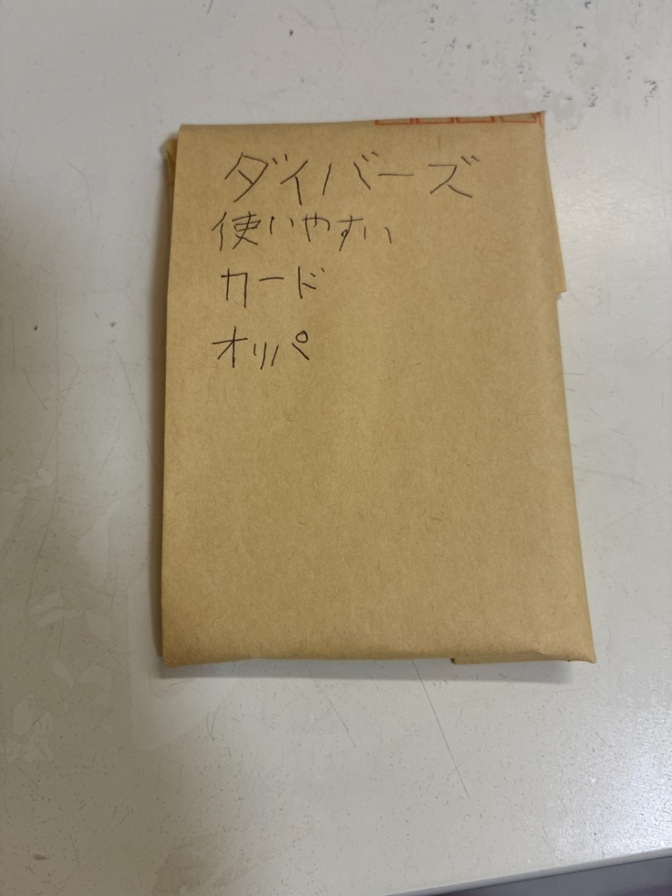 ダイバーズ
使いやすい
カード
オリパ